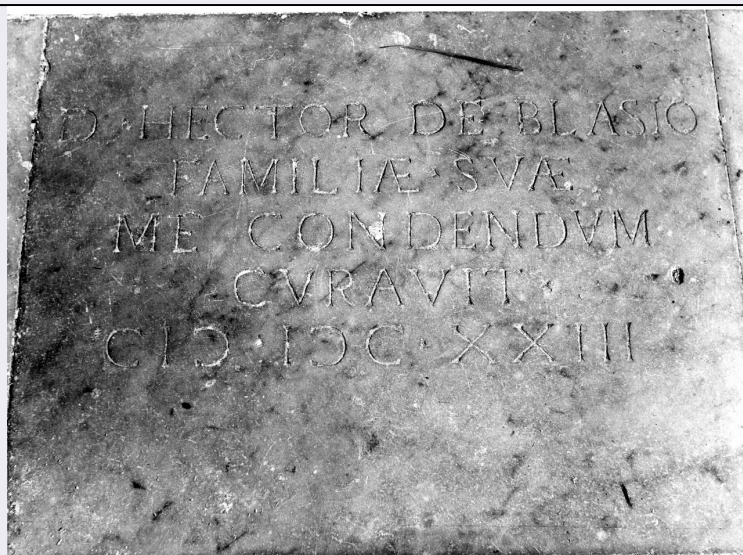 D · HECTOR DE BLASIO
FAMILIÆ · SVÆ
ME CONDENDVM
CVRAVIT ·
CIↃ · IↃC · XXIII